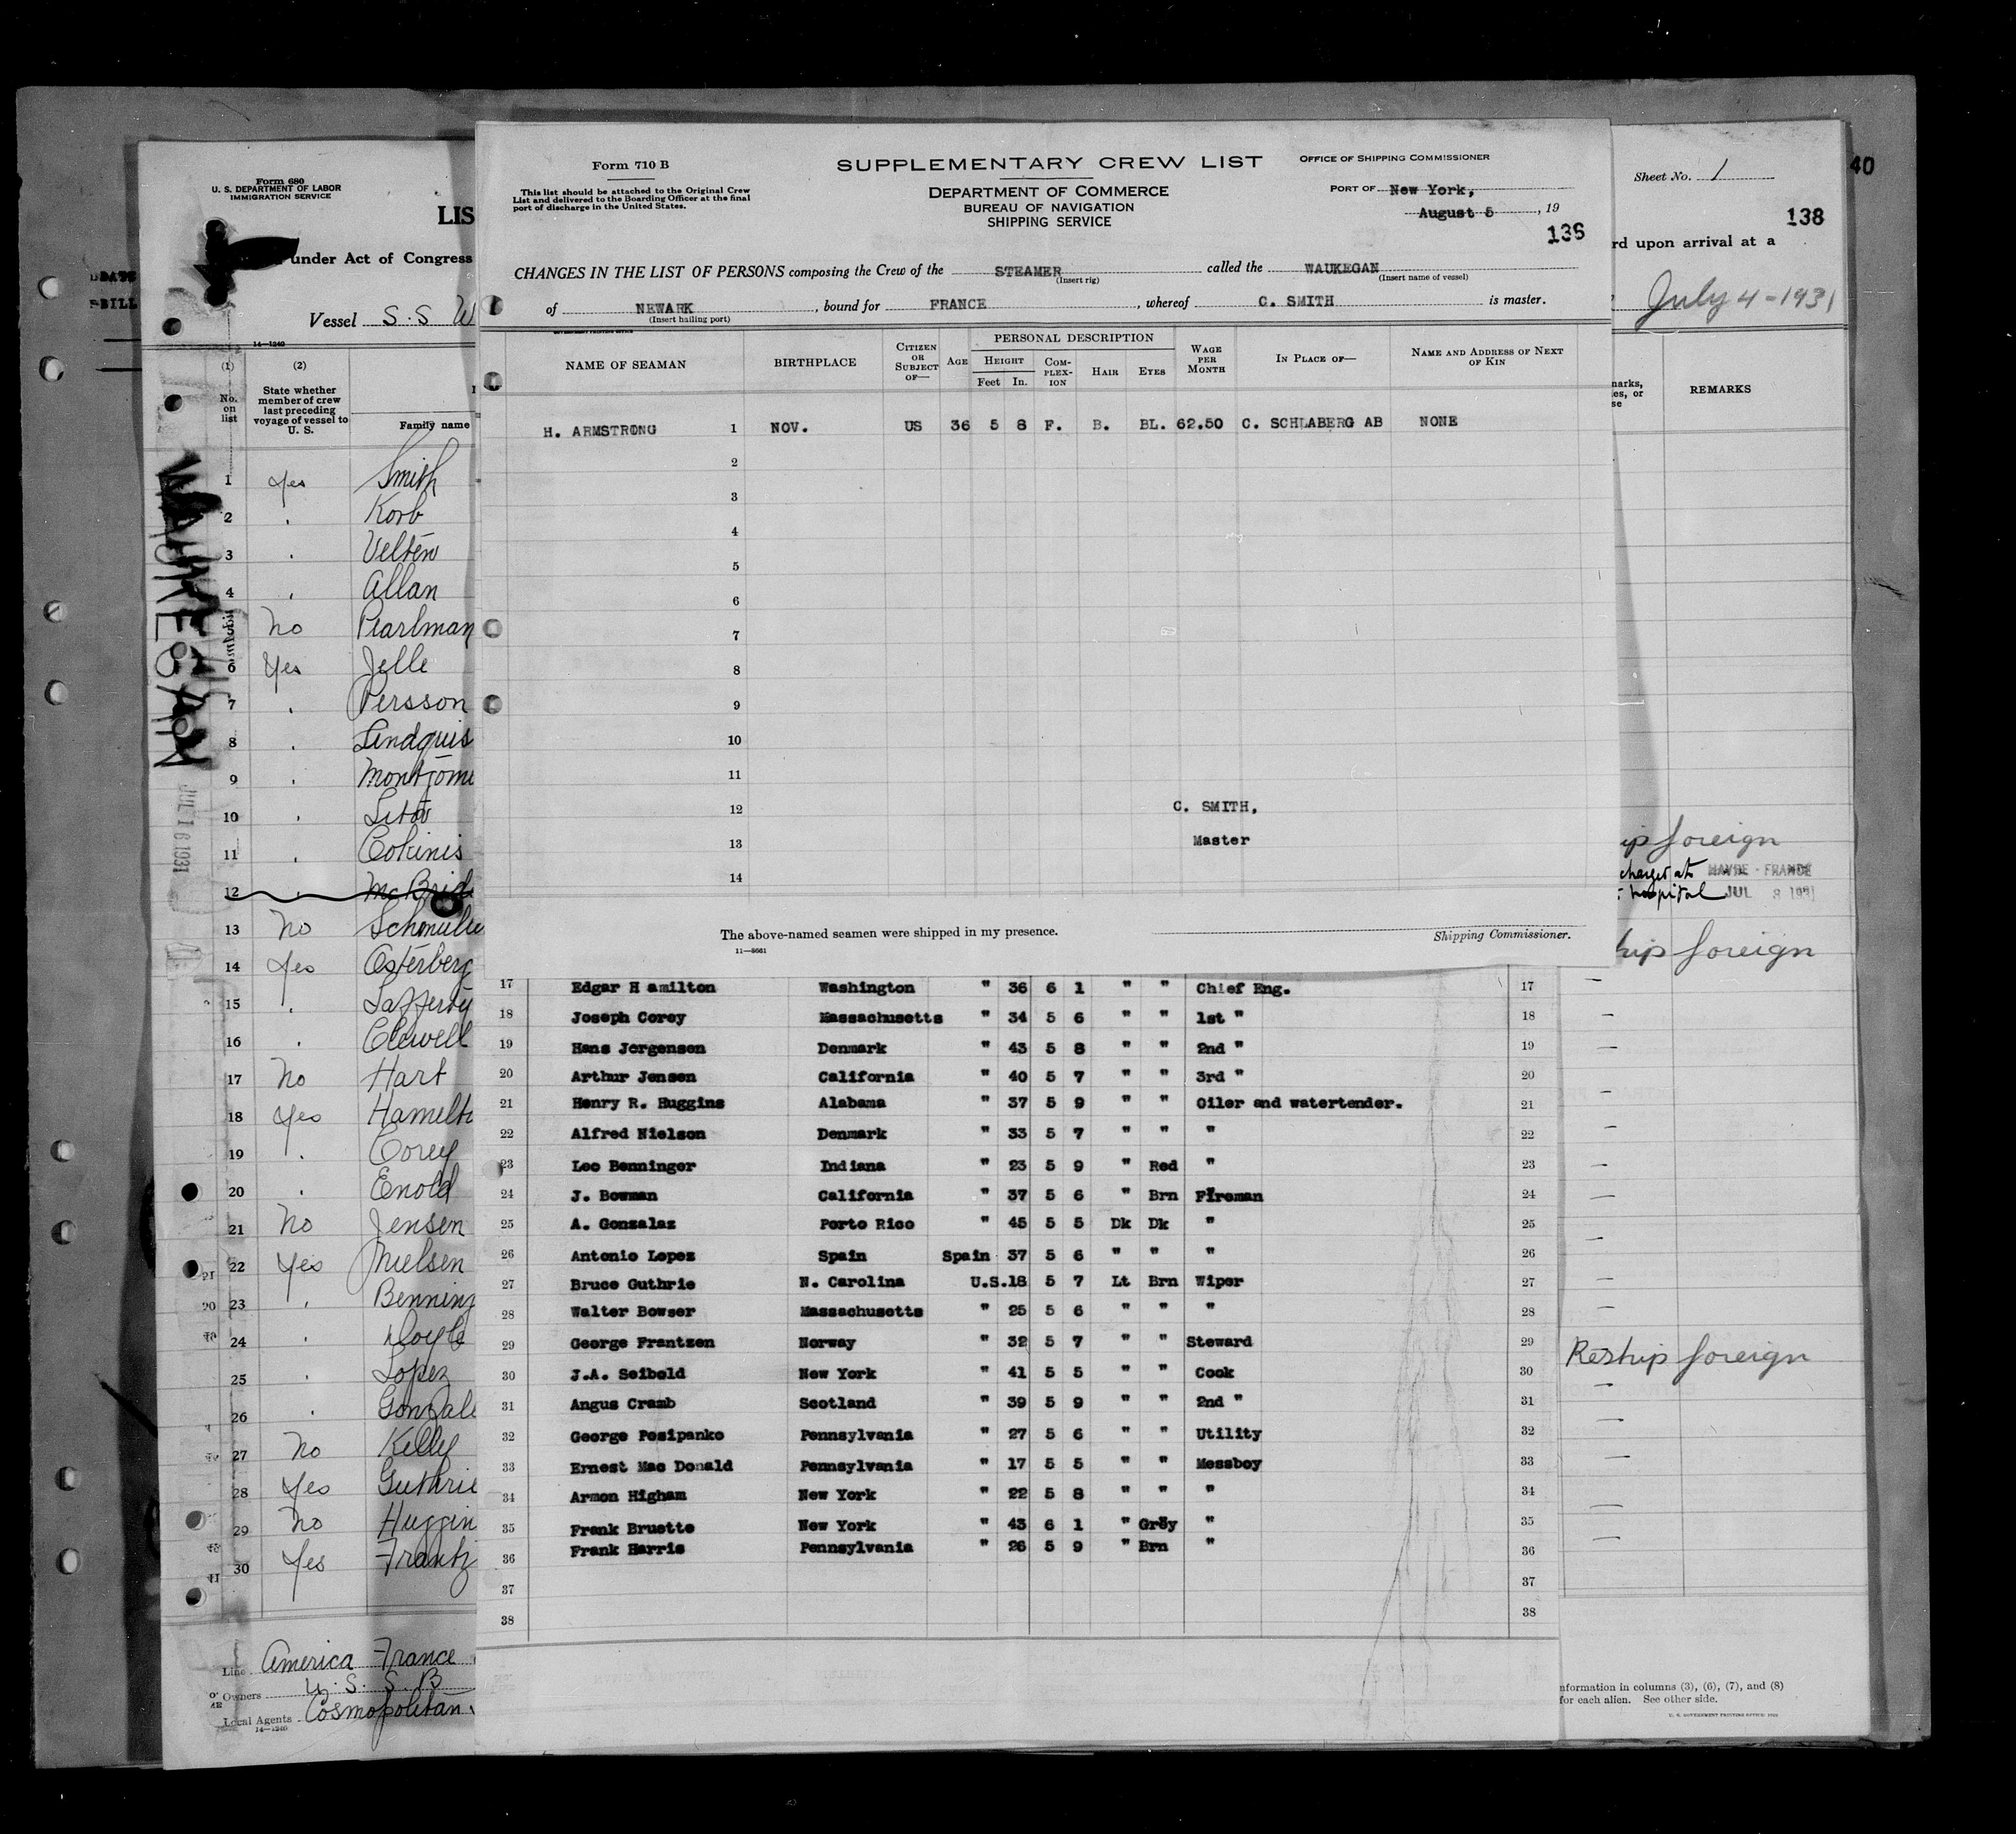 Form 710 B
SUPPLEMENTARY CREW LIST
OFFICE OF SHIPPING COMMISSIONER
This list should be attached to the Original Crew
List and delivered to the Boarding Officer at the final
port of discharge in the United States.
DEPARTMENT OF COMMERCE
BUREAU OF NAVIGATION
SHIPPING SERVICE
PORT OF New York,
August 5, 19
136
CHANGES IN THE LIST OF PERSONS composing the Crew of the STEAMER called the WAUKEGAN
(Insert rig) (Insert name of vessel)
of NEWARK, bound for FRANCE, whereof C. SMITH is master.
(Insert hailing port)
NAME OF SEAMAN BIRTHPLACE CITIZEN OR SUBJECT OF— AGE PERSONAL DESCRIPTION HEIGHT Feet In. COM-PLEX-ION HAIR EYES WAGE PER MONTH IN PLACE OF— NAME AND ADDRESS OF NEXT OF KIN
H. ARMSTRONG 1 NOV. US 36 5 8 F. B. BL. 62.50 C. SCHLABERG AB NONE
2
3
4
5
6
7
8
9
10
11
12 C. SMITH,
13 Master
14
The above-named seamen were shipped in my presence.
Shipping Commissioner.
11—5661
17 Edgar H amilton Washington " 36 6 1 " " Chief Eng. 17
18 Joseph Corey Massachusetts " 34 5 6 " " 1st " 18
19 Hans Jorgensen Denmark " 43 5 8 " " 2nd " 19
20 Arthur Jensen California " 40 5 7 " " 3rd " 20
21 Henry R. Huggins Alabama " 37 5 9 " " Oiler and watertender. 21
22 Alfred Nielson Denmark " 33 5 7 " " " 22
23 Leo Benninger Indiana " 23 5 9 " Red " 23
24 J. Bowman California " 37 5 6 " Brn Fireman 24
25 A. Gonzalaz Porto Rico " 45 5 5 Dk Dk " 25
26 Antonio Lopez Spain Spain 37 5 6 " " " 26
27 Bruce Guthrie N. Carolina U.S. 18 5 7 Lt Brn Wiper 27
28 Walter Bowser Massachusetts " 25 5 6 " " " 28
29 George Frantzen Norway " 32 5 7 " " Steward 29
30 J.A. Seibold New York " 41 5 5 " " Cook 30
31 Angus Cramb Scotland " 39 5 9 " " 2nd " 31
32 George Posipanko Pennsylvania " 27 5 6 " " Utility 32
33 Ernest Mac Donald Pennsylvania " 17 5 5 " " Messboy 33
34 Armon Higham New York " 22 5 8 " " " 34
35 Frank Bruette New York " 43 6 1 " Grey " 35
36 Frank Harris Pennsylvania " 26 5 9 " Brn " 36
37 37
38 38
Form 680
U. S. DEPARTMENT OF LABOR
IMMIGRATION SERVICE
LIS
under Act of Congress
Vessel S.S W
14—1240
(1) (2)
No. on list
State whether member of crew last preceding voyage of vessel to U. S.
Family name
WAUKEGAN
JUL 16 1931
1 Yes Smith
2 " Korb
3 " Velten
4 " Allan
5 No Pearlman
6 Yes Jelle
7 " Persson
8 " Lindquis
9 " Montgome
10 "
11 " Cokinis
12 " McBrid
13 No
14 Yes Osterberg
15 " Lafferty
16 " Clewell
17 No Hart
18 Yes Hamelto
19 " Corey
20 " Enold
21 No Jensen
22 Yes Nielsen
23 " Benning
24 " Doyle
25 " Lopez
26 " Gonzale
27 No Kelly
28 Yes Guthrie
29 No Huggin
30 Yes Frantz
Line America France
Owners U. S. S. B
Local Agents Cosmopolitan
14—1240
Sheet No. 1
40
138
rd upon arrival at a
July 4-1931
narks,
es, or
se
REMARKS
ip foreign
charged at HAVRE - FRANCE
hospital JUL 8 1931
hip foreign
Reship foreign
nformation in columns (3), (6), (7), and (8)
for each alien. See other side.